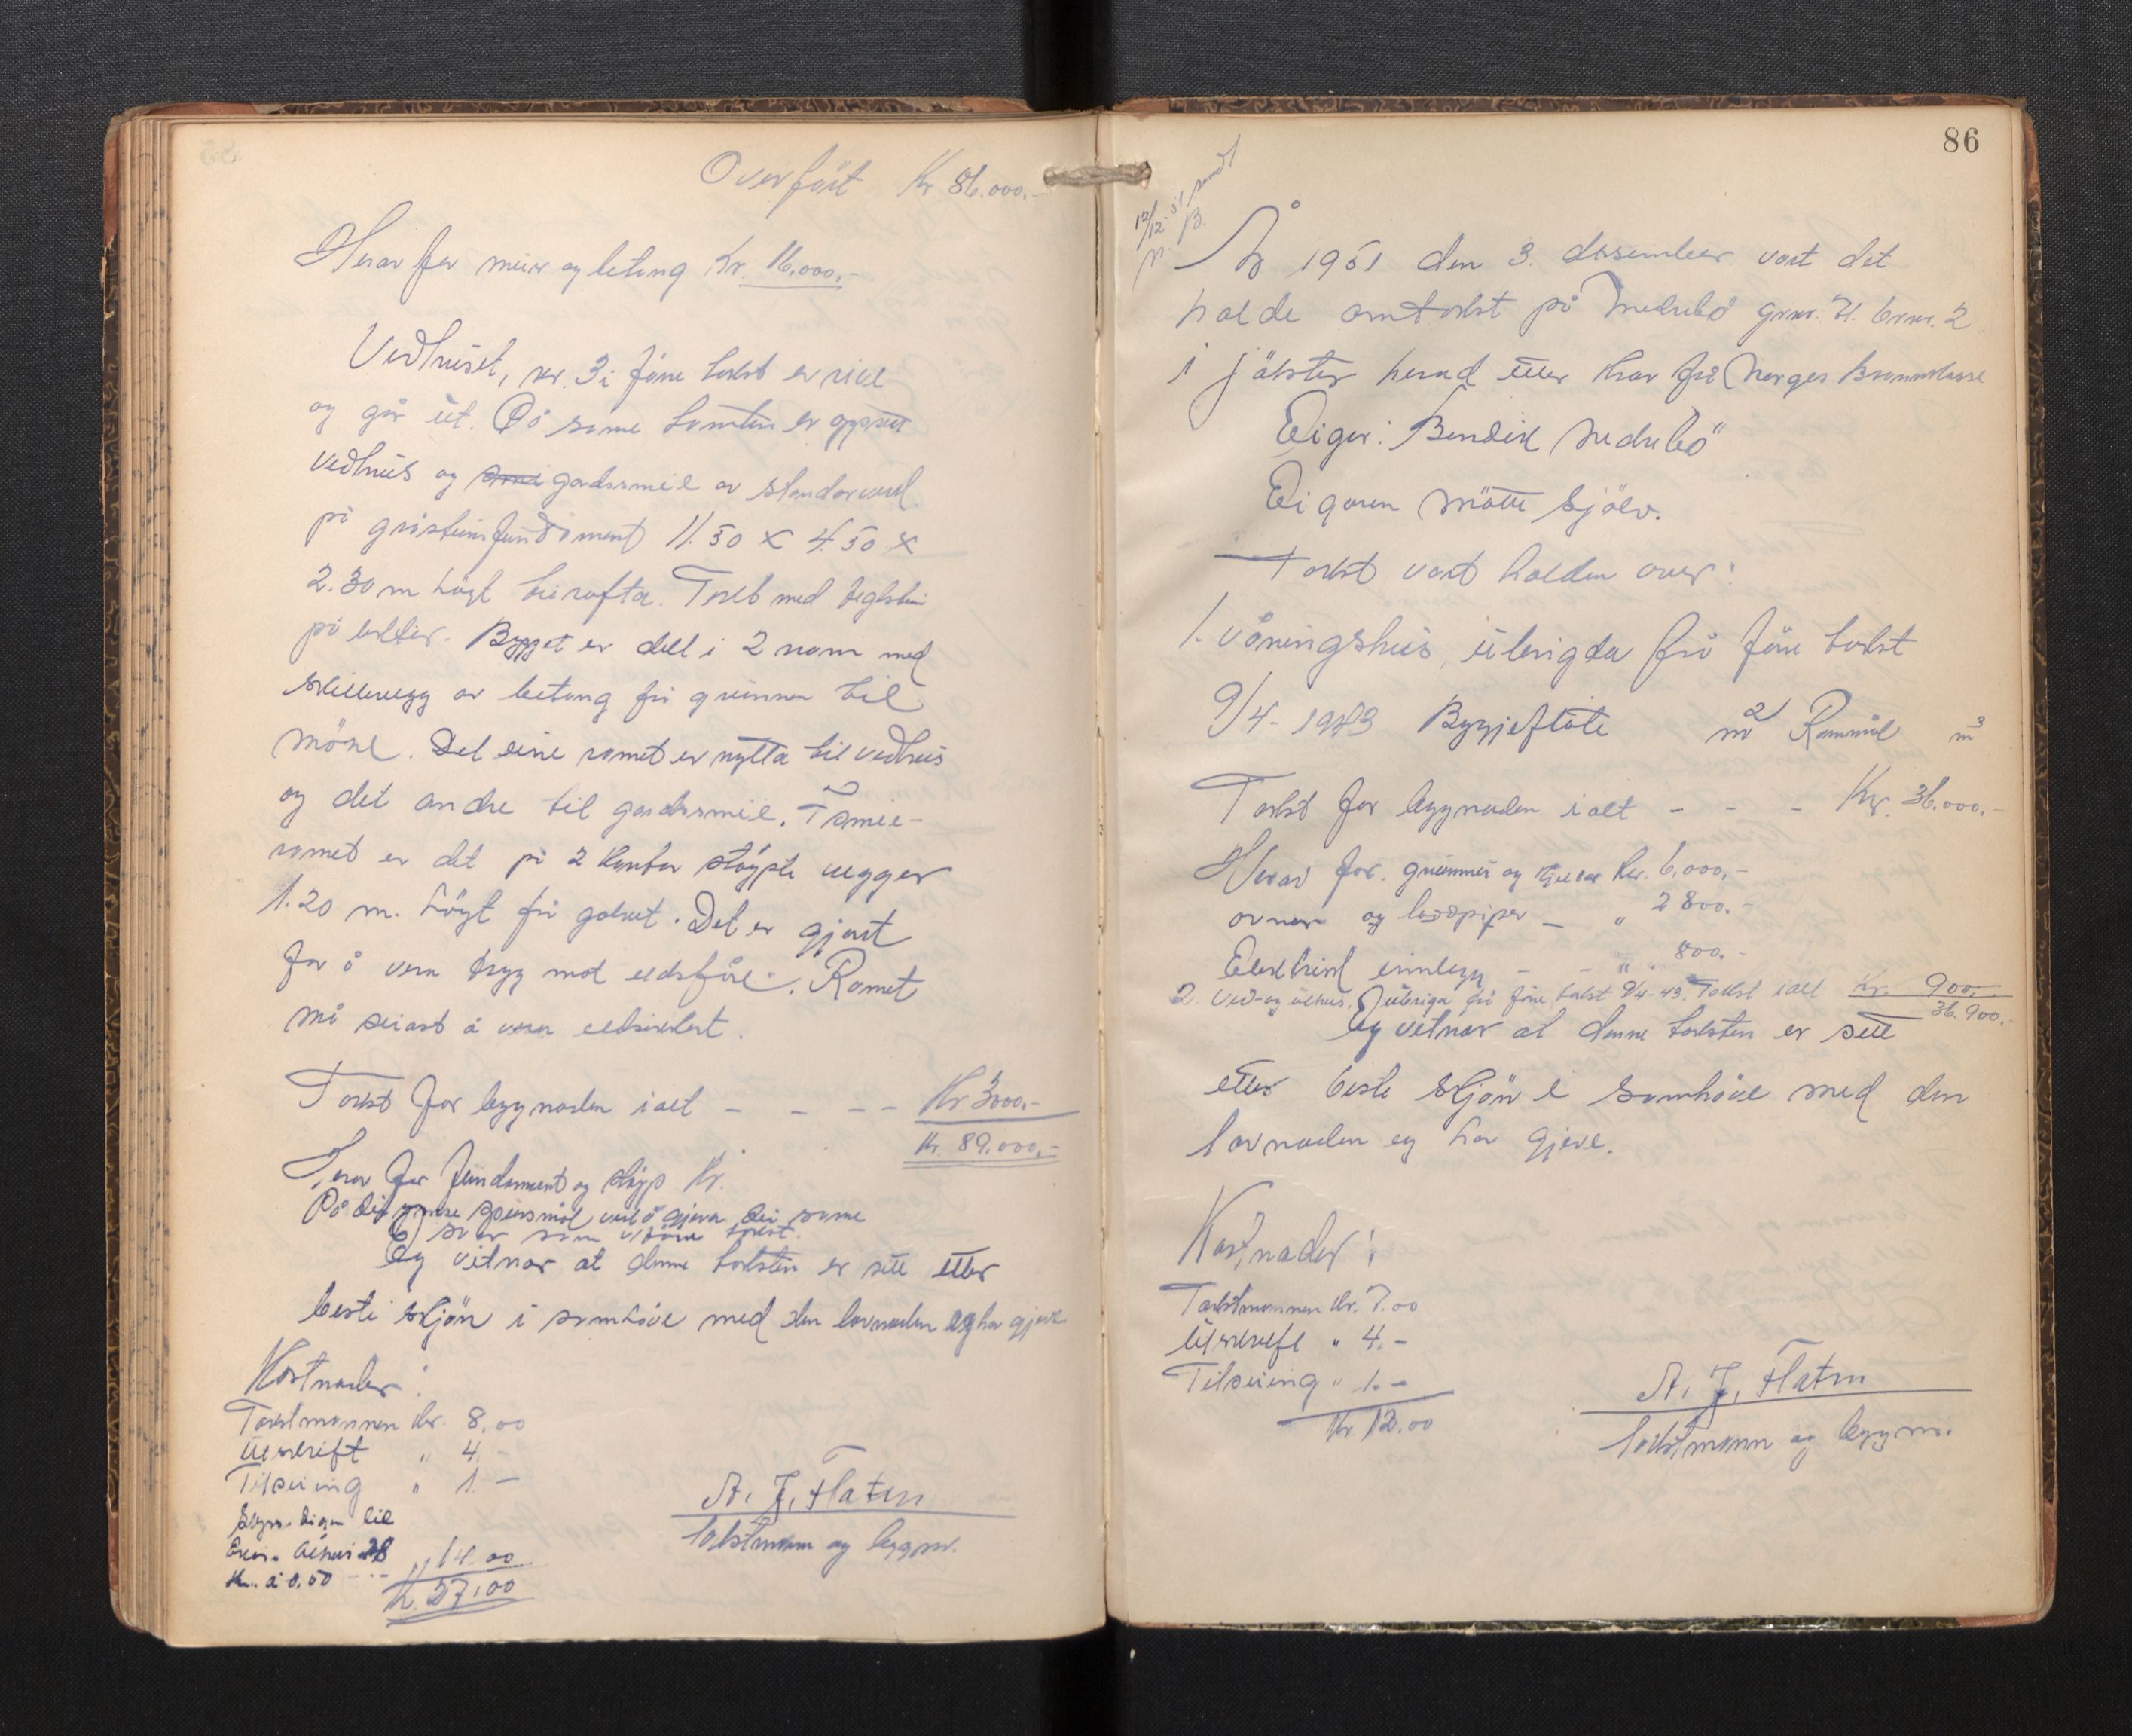 Overført Kr 86.000.-
Herav for murar og betong Kr. 16.000.-
Vedhuset, nr. 3 i fyrre takst er rive
og går ut. På same tomten er oppsett
vedhus og smi gardssmie av standarverk
på gråsteinsfundament 11.50 x 4.50 x
2.30 m høgt til rafta. Tekt med teglstein
på lekter. Bygget er delt i 2 rom med
skillevegg av betong frå grunnen til
møne. Det eine romet er nytta til vedhus
og det andre til gardssmie. I smie-
romet er det på 2 kanter støypte vegger
1.20 m. høgt frå golvet. Det er gjort
for å vera trygg mot eldsfåre. Romet
må seiast å vera eldsikkert.
Takst for bygnaden i alt - - - - Kr 3000.-
Kr. 89.000.-
Herav for fundament og støyp Kr.
På dei ymse spursmål vert å gjeva dei same
svar som v/ fyrre takst.
Eg vitnar at denne taksten er sett etter
beste skjøn i samhøve med den lovnaden eg har gjeve
Kostnader:
Takstmannen kr. 8,00
Utskrift " 4.-
Tilseiing " 1.-
Skyss. eigen bil
28
km. à 0,50 - - " 14.00
Kr. 27,00
A. J. Flaten
takstmann og byggm.
86
12/12-51 sendt
N. B.
År 1951 den 3. desember vart det
halde omtakst på Nedrebø grnr. 71. brnr. 2
i Jølster herad etter krav frå Norges Brannkasse
Eigar: Bendik Nedrebø
Eigaren møtte sjølv.
Takst vart halden over:
1. Våningshus, ubrigda frå fyrre takst
9/4-1943 Byggjeflate m2 Rommål m3
Takst for bygnaden i alt - - - Kr. 36.000.-
Herav for. grunnmur og kjellar kr. 6,000,-
ovnar og ladpiper - " 2800.-
Elektrisk innlegg - - " 800.-
2. Ved- og uthus. Ubrigda frå fyrre takst 9/4-43. Takst i alt Kr. 900.-
36.900.-
Eg vitnar at denne taksten er sett
etter beste skjøn i samhøve med den
lovnaden eg har gjeve.
Kostnader:
Takstmannen kr. 7.00
Utskrift " 4.-
Tilseiing " 1.-
Kr 12.00
A. J. Flaten
takstmann og byggm.